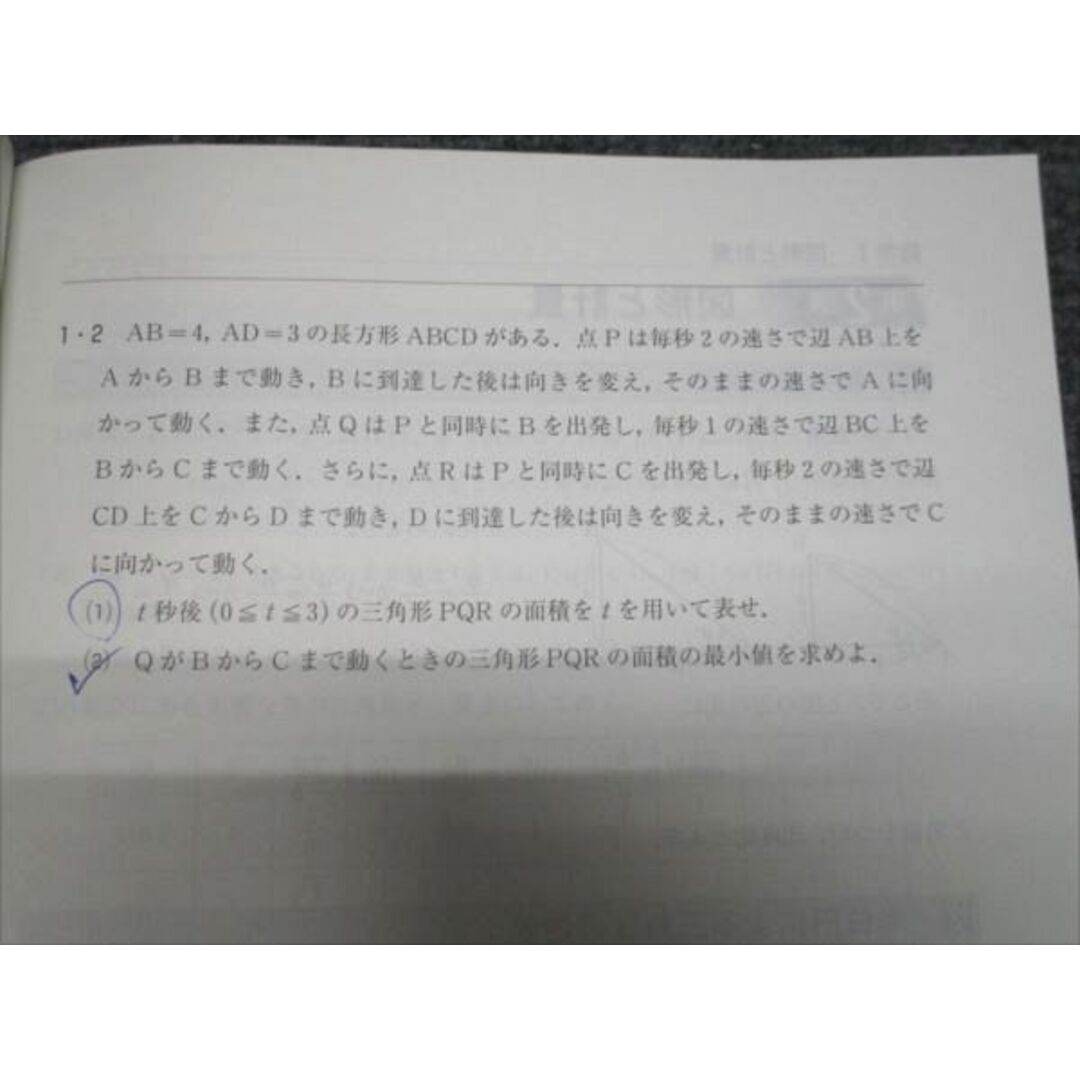 1・2 AB=4, AD=3の長方形ABCDがある．点Pは毎秒2の速さで辺AB上を
AからBまで動き, Bに到達した後は向きを変え, そのままの速さでAに向
かって動く．また, 点QはPと同時にBを出発し, 毎秒1の速さで辺BC上を
BからCまで動く．さらに, 点RはPと同時にCを出発し, 毎秒2の速さで辺
CD上をCからDまで動き, Dに到達した後は向きを変え, そのままの速さでC
に向かって動く．
(1) t秒後(0≦t≦3)の三角形PQRの面積をtを用いて表せ．
(2) QがBからCまで動くときの三角形PQRの面積の最小値を求めよ．